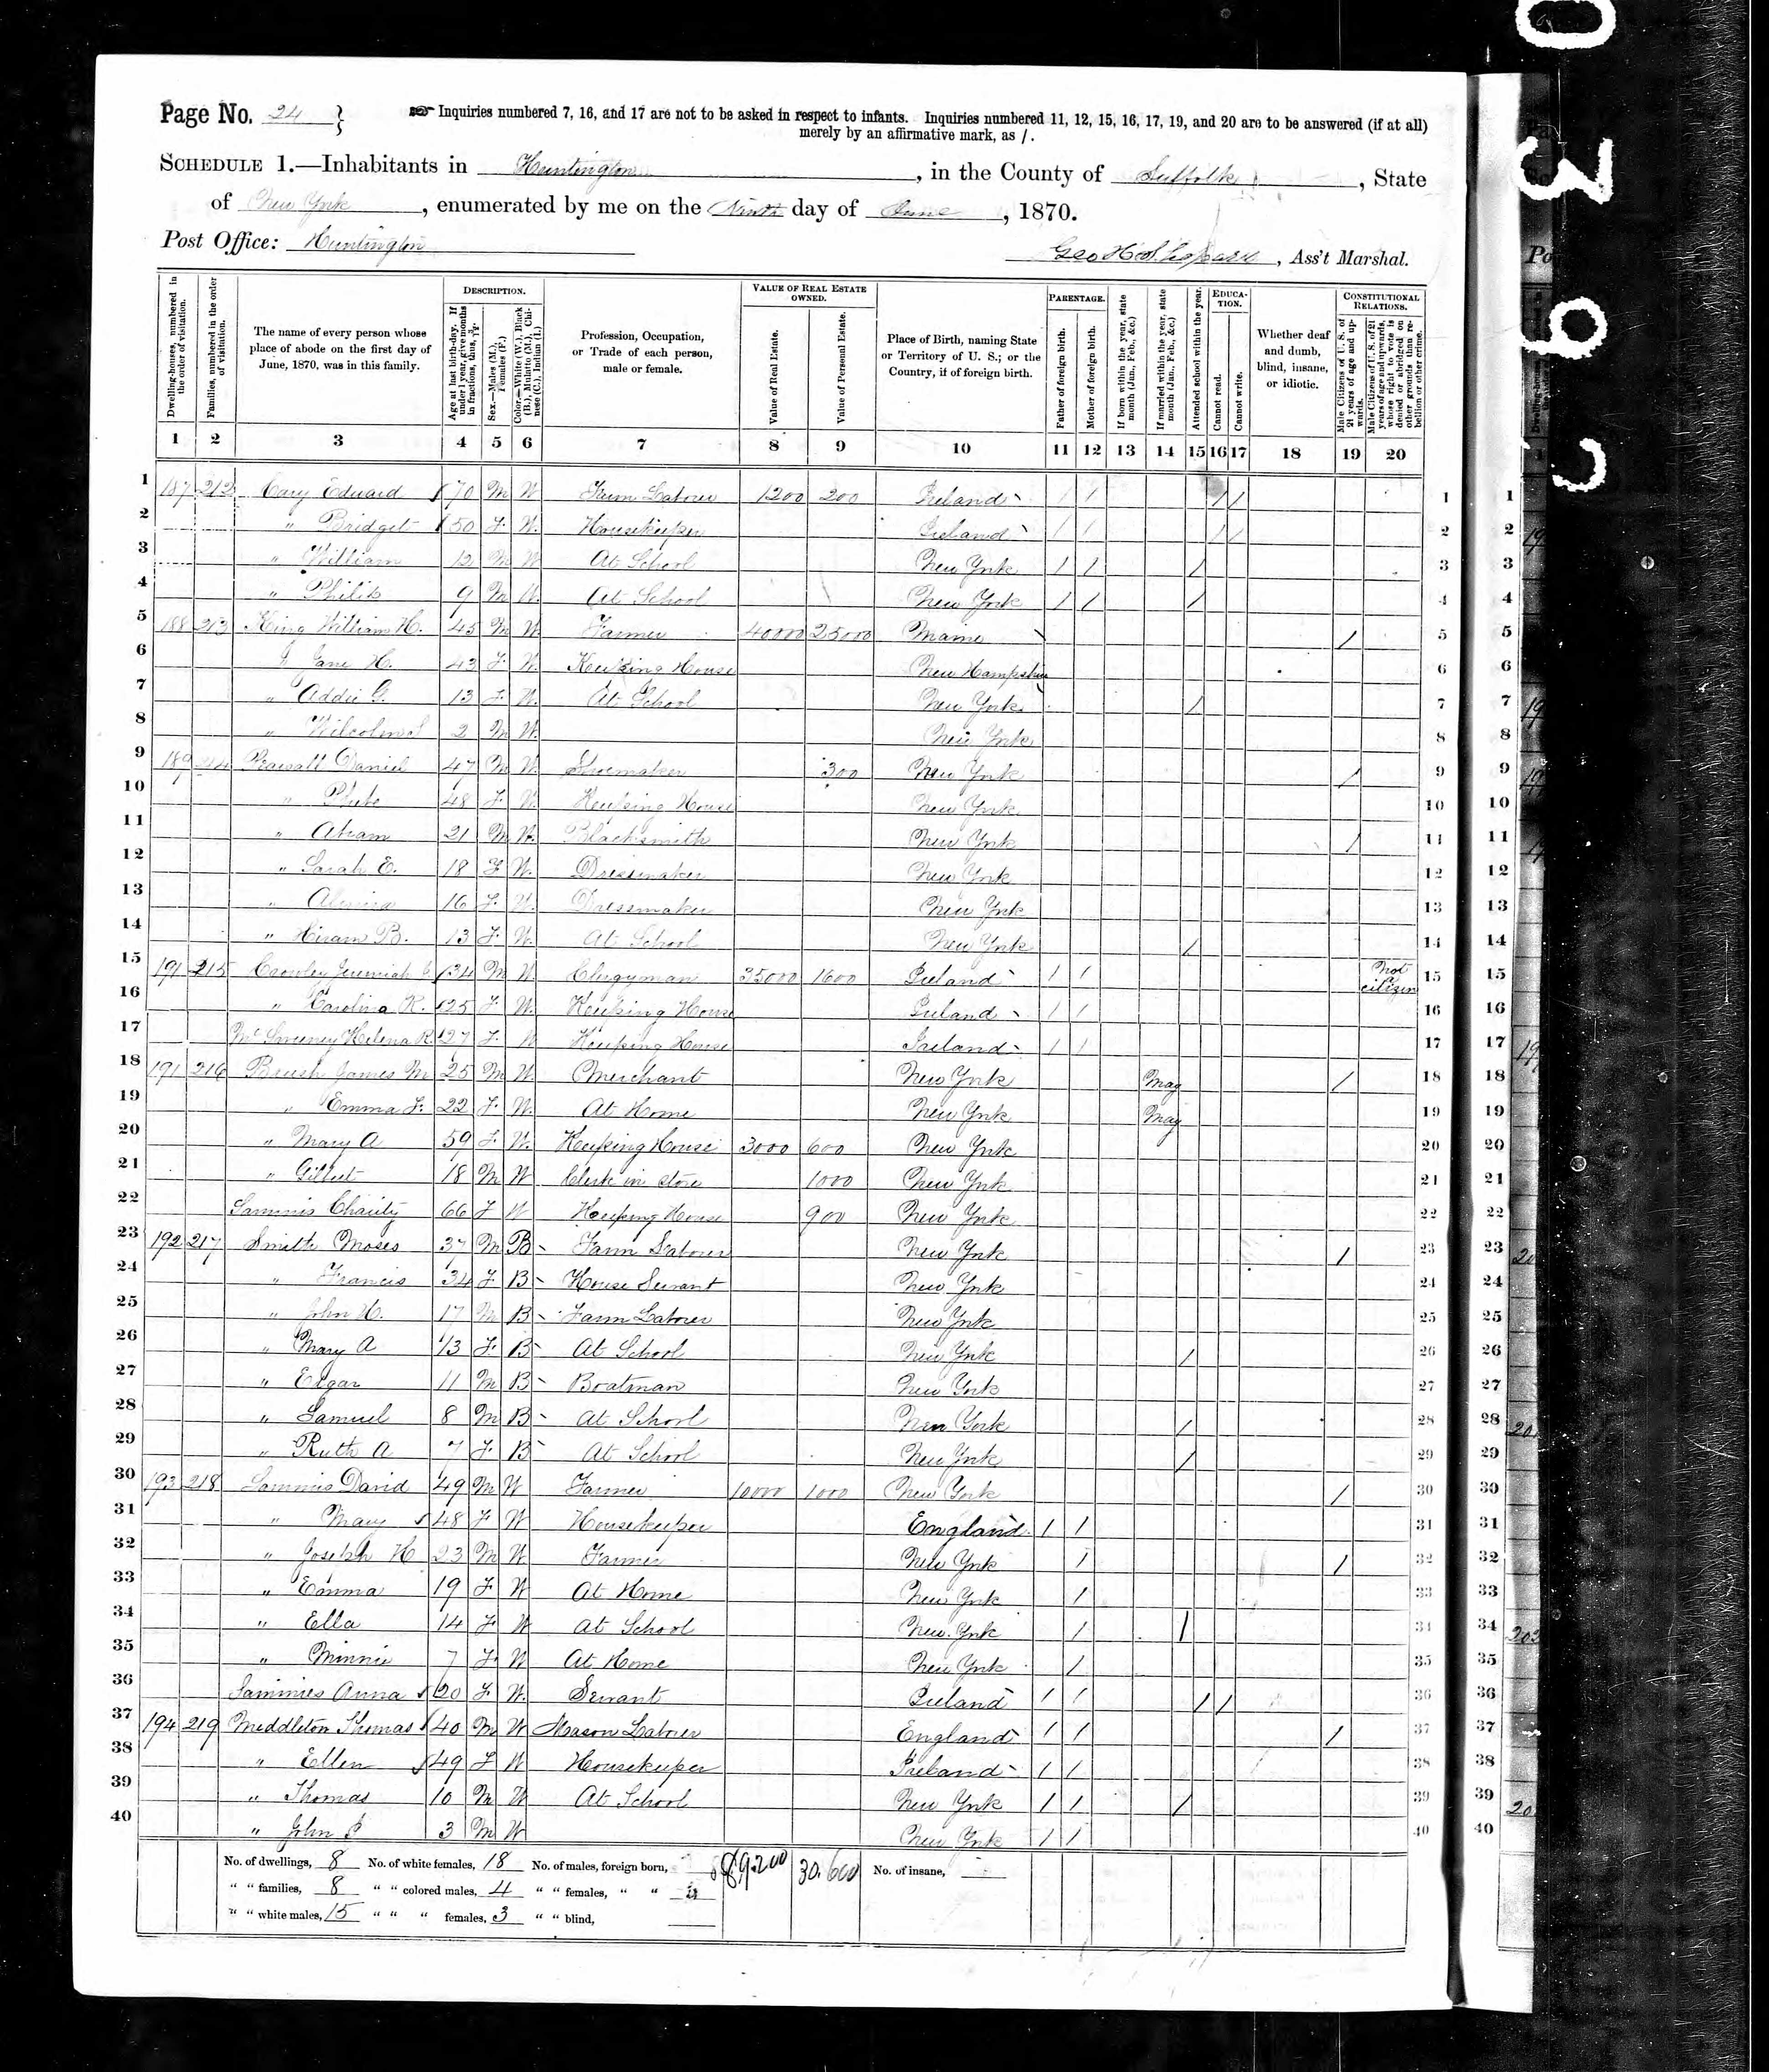 Page No. 24
Inquiries numbered 7, 16, and 17 are not to be asked in respect to infants. Inquiries numbered 11, 12, 15, 16, 17, 19, and 20 are to be answered (if at all)
merely by an affirmative mark, as /.
SCHEDULE 1.—Inhabitants in Huntington, in the County of Suffolk, State
of New York, enumerated by me on the Ninth day of June, 1870.
Post Office: Huntington
Geo H Shepard, Ass't Marshal.
Dwelling-houses, numbered in the order of visitation.
Families, numbered in the order of visitation.
The name of every person whose place of abode on the first day of June, 1870, was in this family.
DESCRIPTION.
Age at last birth-day. If under 1 year, give months in fractions, thus, 3/12.
Sex.—Males (M.), Females (F.)
Color.—White (W.), Black (B.), Mulatto (M.), Chinese (C.), Indian (I.)
Profession, Occupation, or Trade of each person, male or female.
VALUE OF REAL ESTATE OWNED.
Value of Real Estate.
Value of Personal Estate.
Place of Birth, naming State or Territory of U. S.; or the Country, if of foreign birth.
PARENTAGE.
Father of foreign birth.
Mother of foreign birth.
If born within the year, state month (Jan., Feb., &c.)
If married within the year, state month (Jan., Feb., &c.)
Attended school within the year.
EDUCATION.
Cannot read.
Cannot write.
Whether deaf and dumb, blind, insane, or idiotic.
CONSTITUTIONAL RELATIONS.
Male Citizens of U. S. of 21 years of age and upwards.
Male Citizens of U. S. of 21 years of age and upwards, whose right to vote is denied or abridged on other grounds than rebellion or other crime.
1 2 3 4 5 6 7 8 9 10 11 12 13 14 15 16 17 18 19 20
1 187 213 Cary Edward 70 M W Farm Laborer 1200 200 Ireland / / / / 1
2 " Bridget 50 F W. Housekeeper Ireland / / / / 2
3 " William 12 M W At School New York / / / 3
4 " Philip 9 M W. At School New York / / / 4
5 188 213 King William H. 45 M W. Farmer 40000 25000 Maine / 5
6 " Jane H. 43 F W. Keeping House New Hampshire 6
7 " Addie G. 13 F W. At School New York / 7
8 " 2 M W. New York 8
9 189 214 Pearsall Daniel 47 M W. Shoemaker 300 New York / 9
10 " Phebe 48 F W. Keeping House New York 10
11 " 21 M W. Blacksmith New York / 11
12 " Sarah E. 18 F W. Dressmaker New York 12
13 " Almira 16 F. W. Dressmaker New York 13
14 " Hiram B. 13 F. W. At School New York / 14
15 191 215 Crowley Jeremiah 34 M W Clergyman 35000 1600 Ireland / / Not a citizen 15
16 " Carolina R. 25 F W Keeping House Ireland / / 16
17 McSweeney Helena R. 27 F. W Keeping House Ireland / / 17
18 191 216 Brush James M 25 M W. Merchant New York May / 18
19 " Emma F. 22 F. W. At Home New York May 19
20 " Mary A 59 F. W. Keeping House 3000 600 New York 20
21 " Gilbert 18 M W Clerk in store 1000 New York 21
22 Sammis Charity 66 F W Keeping House 900 New York 22
23 192 217 Smith Moses 37 M B Farm Laborer New York / 23
24 " Francis 34 F B House Servant New York 24
25 " John H. 17 M B Farm Laborer New York 25
26 " Mary A 13 F. B At School New York / 26
27 " Edgar 11 M B Boatman New York 27
28 " Samuel 8 M B At School New York / 28
29 " Ruth A 7 F B At School New York / 29
30 193 218 Sammis David 49 M W Farmer 10000 1000 New York / 30
31 " Mary 48 F W Housekeeper England / / 31
32 " Joseph H 23 M W Farmer New York / / 32
33 " Emma 19 F W At Home New York / 33
34 " Ella 14 F W At School New York / / 34
35 " Minnie 7 F W At Home New York / 35
36 Sammies Anna 20 F W. Servant Ireland / / / / 36
37 194 219 Meddleton Thomas 40 M W Mason Laborer England / / / 37
38 " Ellen 49 F W Housekeeper Ireland / / 38
39 " Thomas 10 M W At School New York / / / 39
40 " John 3 M W New York / / 40
No. of dwellings, 8 No. of white females, 18 No. of males, foreign born, 89.200 30.600 No. of insane,
" " families, 8 " " colored males, 4 " " females, " "
" " white males, 15 " " " females, 3 " " blind,